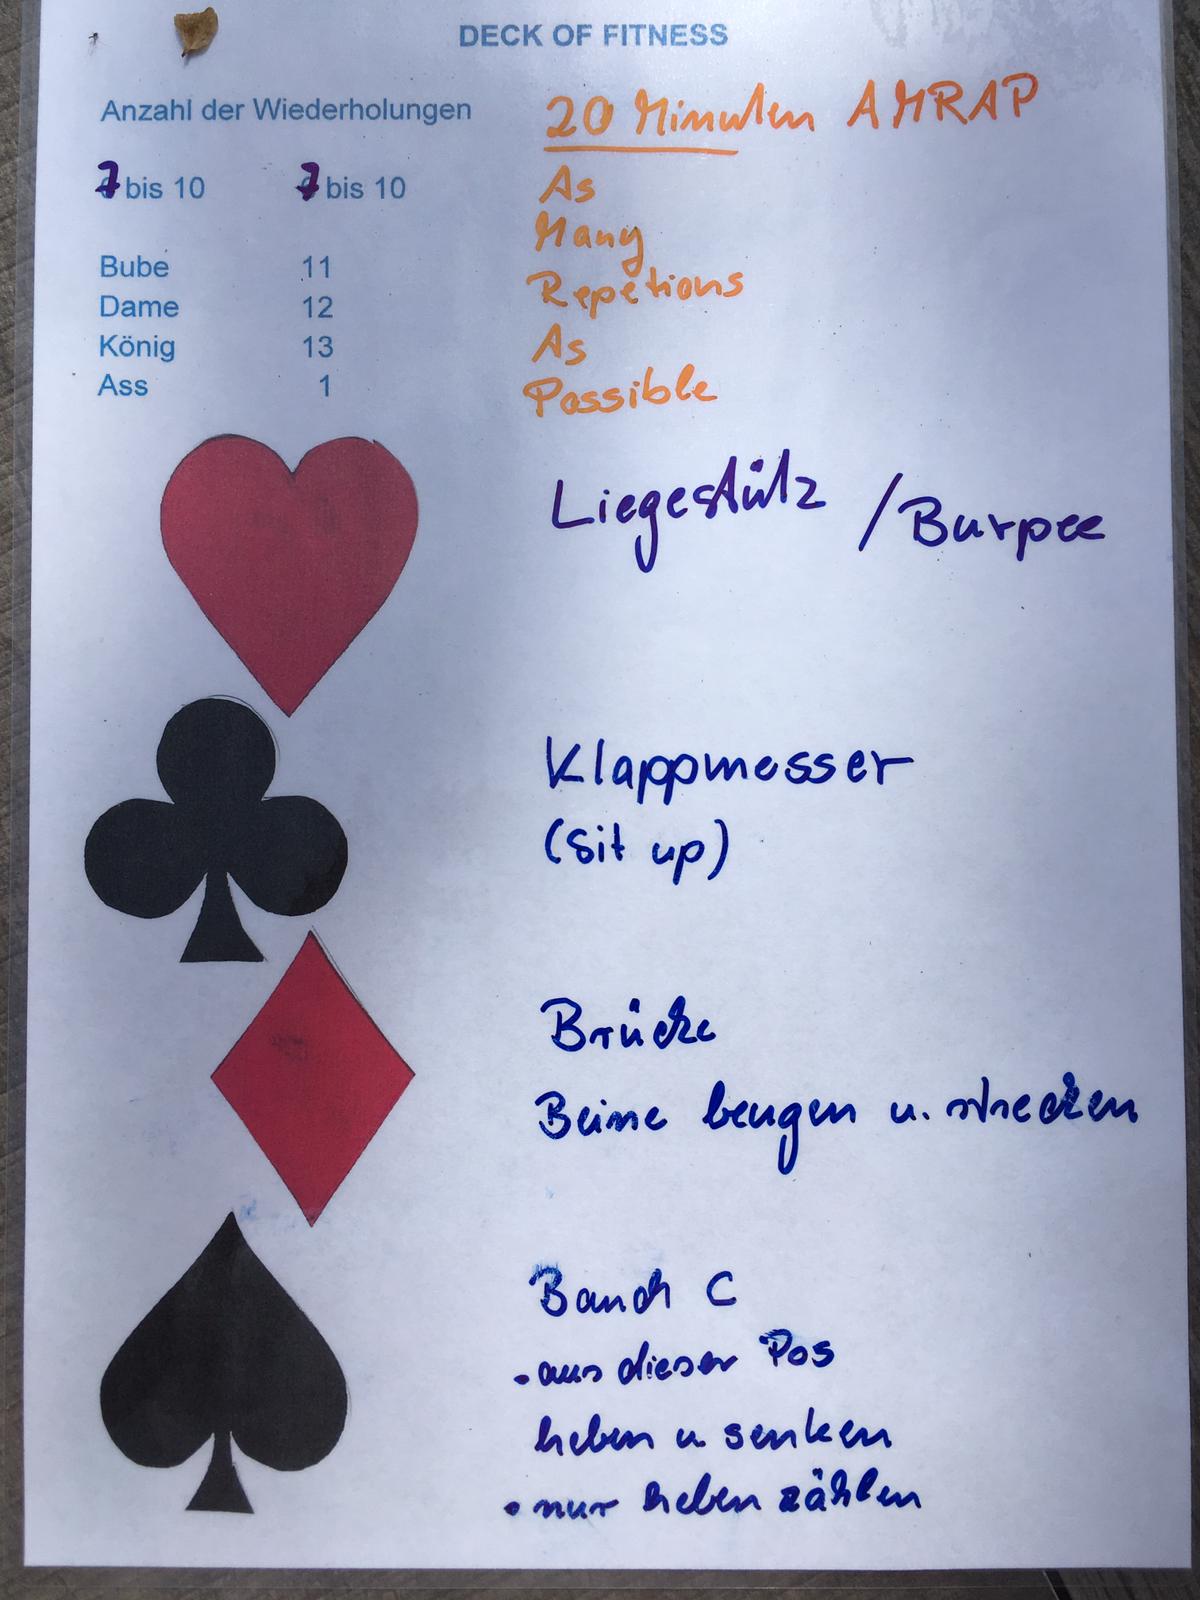 DECK OF FITNESS
Anzahl der Wiederholungen
7 bis 10 7 bis 10
Bube 11
Dame 12
König 13
Ass 1
20 Minuten AMRAP
As
Many
Repetions
As
Possible
Liegestütz / Burpee
Klappmesser
(Sit up)
Brücke
Beine beugen u. strecken
Bauch C
• aus dieser Pos
heben u senken
• nur heben zählen